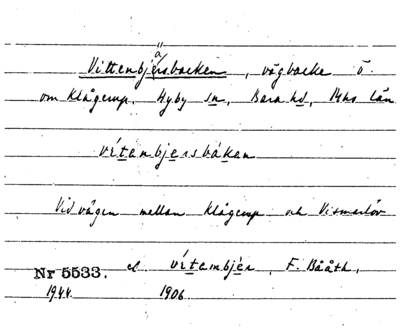 ä
Vittenbjersbacken, vägbacke ö.
om Klågerup, Hyby sn, Bara hd, Mhs län
vítenbjersbáken
Vid vägen mellan Klågerup och Vismarlöv
el vítembjér, F. Bååth,
Nr 5533.
1944. 1906.